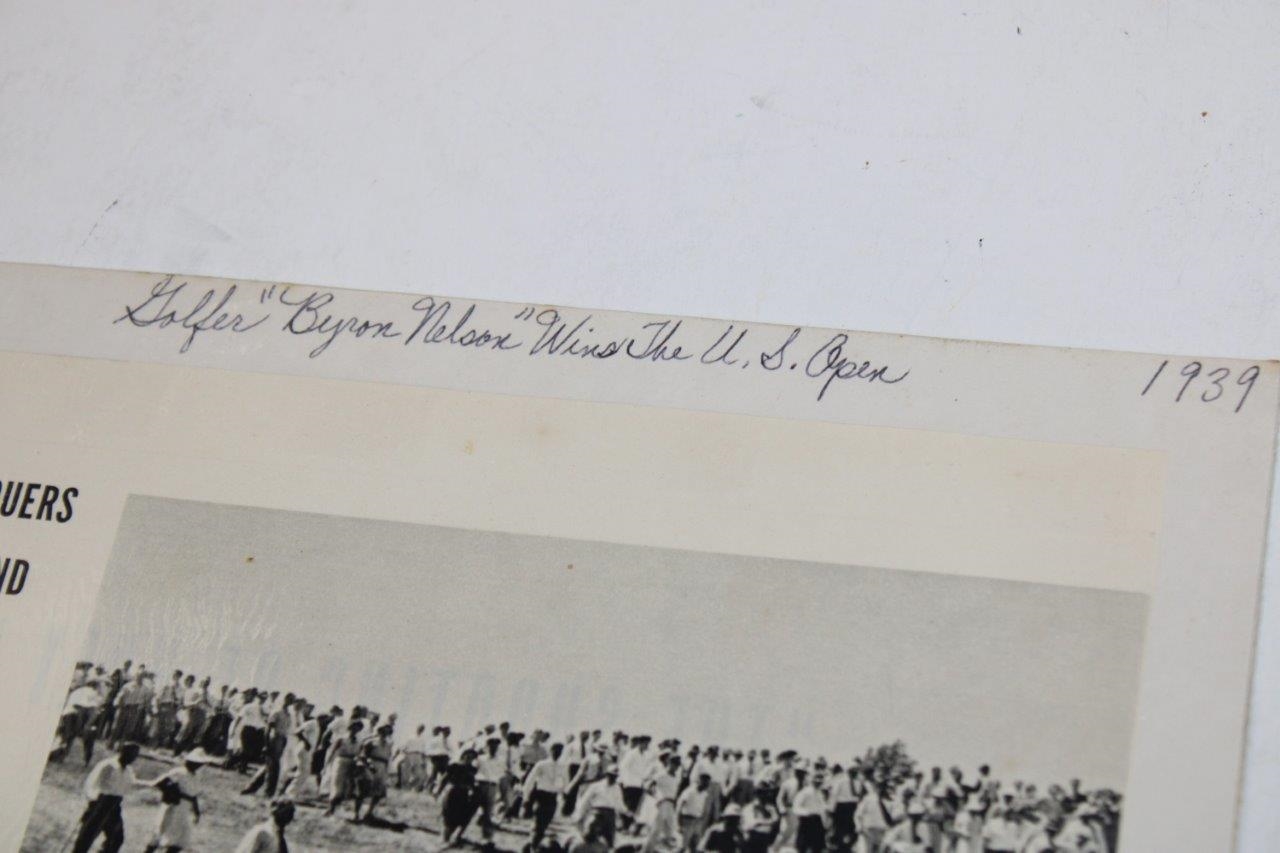 Golfer "Byron Nelson" Wins The U. S. Open 1939
UERS
ND